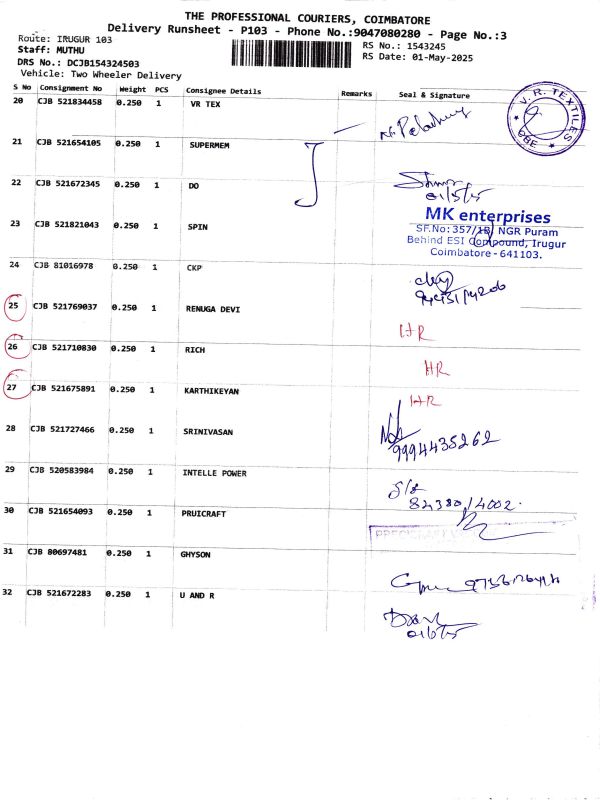 THE PROFESSIONAL COURIERS, COIMBATORE
Delivery Runsheet - P103 - Phone No.:9047080280 - Page No.:3
Route: IRUGUR 103
Staff: MUTHU
DRS No.: DCJB154324503
Vehicle: Two Wheeler Delivery
RS No.: 1543245
RS Date: 01-May-2025
S No Consignment No Weight PCS Consignee Details Remarks Seal & Signature
20 CJB 521834458 0.250 1 VR TEX
V. R. TEXTILES
CBE
21 CJB 521654105 0.250 1 SUPERMEM
22 CJB 521672345 0.250 1 DO
01/5/5
23 CJB 521821043 0.250 1 SPIN
MK enterprises
SF.No: 357/1B, NGR Puram
Behind ESI Compound, Irugur
Coimbatore - 641103.
24 CJB 81016978 0.250 1 CKP
25 CJB 521769037 0.250 1 RENUGA DEVI
HR
26 CJB 521710830 0.250 1 RICH
HR
27 CJB 521675891 0.250 1 KARTHIKEYAN
HR
28 CJB 521727466 0.250 1 SRINIVASAN
9994435262
29 CJB 520583984 0.250 1 INTELLE POWER
30 CJB 521654093 0.250 1 PRUICRAFT
31 CJB 80697481 0.250 1 GHYSON
32 CJB 521672283 0.250 1 U AND R